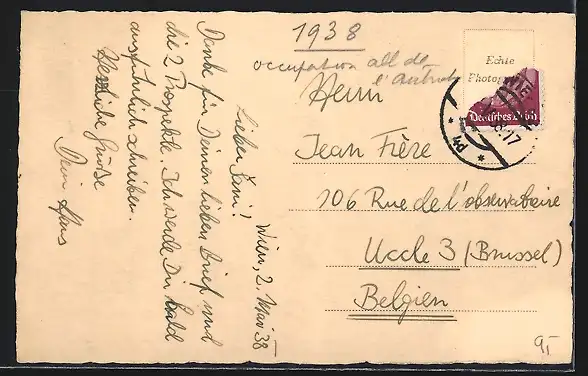 1938
occupation all de
l'Autriche
Echte
Photogr
Deutsches Reich
Wien, 2. Mai 38
Lieber Jani!
Danke für Deinen lieben Brief und
die 2 Prospekte. Ich werde Dir bald
ausführlich schreiben.
Herzliche Grüße
Dein Hans
Herrn
Jean Frère
106 Rue de l'observatoire
Uccle 3 (Brussel)
Belgien
9,-